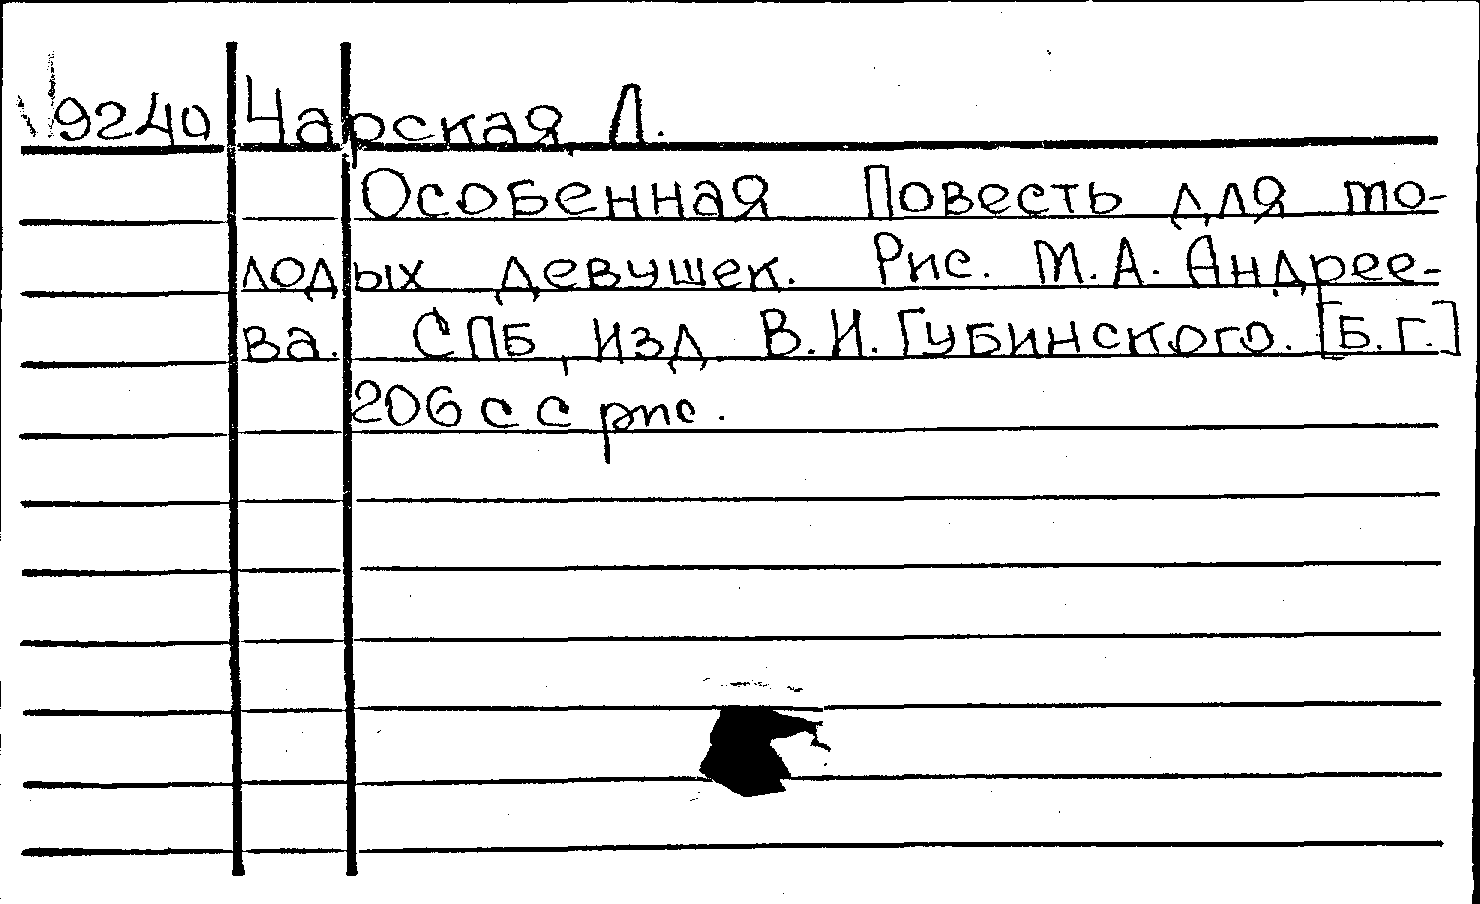 9240 Чарская, Л.
Особенная Повесть для мо-
лодых девушек. Рис. М.А. Андрее-
ва. СПБ, изд В.И. Губинского. [Б.Г.]
206 с с рис.